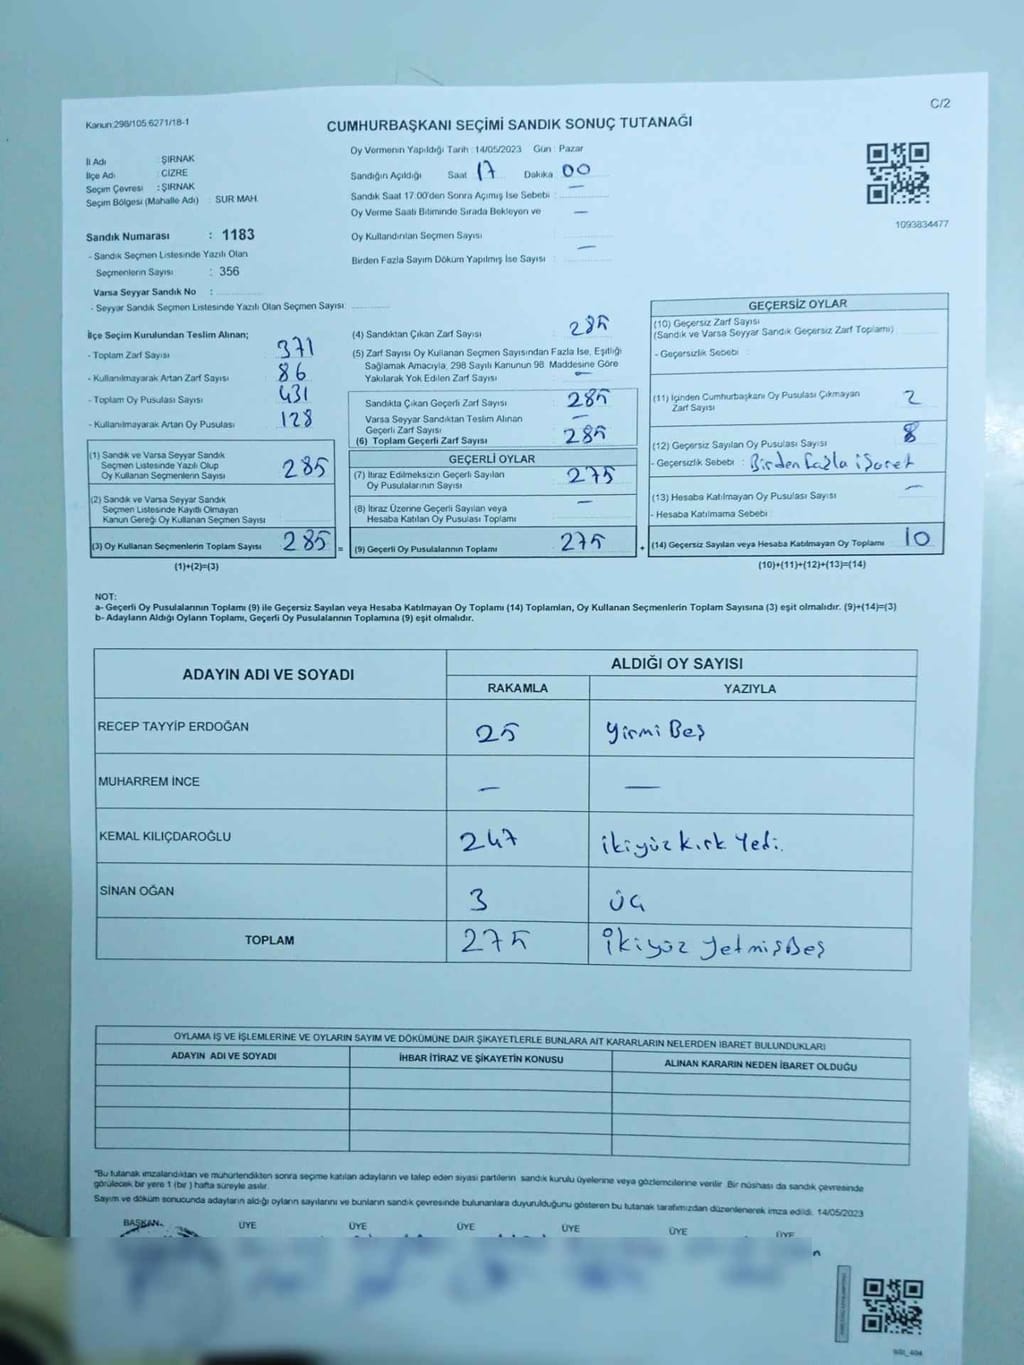 C/2
Kanun:298/105 6271/18-1
CUMHURBAŞKANI SEÇİMİ SANDIK SONUÇ TUTANAĞI
İl Adı : ŞIRNAK
İlçe Adı : CİZRE
Seçim Çevresi : ŞIRNAK
Seçim Bölgesi (Mahalle Adı) : SUR MAH.
Sandık Numarası : 1183
- Sandık Seçmen Listesinde Yazılı Olan
Seçmenlerin Sayısı : 356
Varsa Seyyar Sandık No :
- Seyyar Sandık Seçmen Listesinde Yazılı Olan Seçmen Sayısı:
Oy Vermenin Yapıldığı Tarih : 14/05/2023 Gün : Pazar
Sandığın Açıldığı Saat 17 Dakika 00
Sandık Saat 17:00'den Sonra Açımış İse Sebebi : —
Oy Verme Saati Bitiminde Sırada Bekleyen ve —
Oy Kullandırılan Seçmen Sayısı
Birden Fazla Sayım Döküm Yapılmış İse Sayısı : —
1093834477
İlçe Seçim Kurulundan Teslim Alınan;
- Toplam Zarf Sayısı 371
- Kullanılmayarak Artan Zarf Sayısı 86
- Toplam Oy Pusulası Sayısı 431
- Kullanılmayarak Artan Oy Pusulası 128
(1) Sandık ve Varsa Seyyar Sandık
Seçmen Listesinde Yazılı Olup
Oy Kullanan Seçmenlerin Sayısı 285
(2) Sandık ve Varsa Seyyar Sandık
Seçmen Listesinde Kayıtlı Olmayan
Kanun Gereği Oy Kullanan Seçmen Sayısı
(3) Oy Kullanan Seçmenlerin Toplam Sayısı 285 =
(1)+(2)=(3)
(4) Sandıktan Çıkan Zarf Sayısı 285
(5) Zarf Sayısı Oy Kullanan Seçmen Sayısından Fazla İse, Eşitliği
Sağlamak Amacıyla, 298 Sayılı Kanunun 98. Maddesine Göre
Yakılarak Yok Edilen Zarf Sayısı —
Sandıkta Çıkan Geçerli Zarf Sayısı 285
Varsa Seyyar Sandıktan Teslim Alınan
Geçerli Zarf Sayısı —
(6) Toplam Geçerli Zarf Sayısı 285
GEÇERLİ OYLAR
(7) İtiraz Edilmeksizin Geçerli Sayılan
Oy Pusulalarının Sayısı 275
(8) İtiraz Üzerine Geçerli Sayılan veya
Hesaba Katılan Oy Pusulası Toplamı —
(9) Geçerli Oy Pusulalarının Toplamı 275 +
GEÇERSİZ OYLAR
(10) Geçersiz Zarf Sayısı
(Sandık ve Varsa Seyyar Sandık Geçersiz Zarf Toplamı)
- Geçersizlik Sebebi :
(11) İçinden Cumhurbaşkanı Oy Pusulası Çıkmayan
Zarf Sayısı 2
(12) Geçersiz Sayılan Oy Pusulası Sayısı 8
- Geçersizlik Sebebi : Birden Fazla işaret
(13) Hesaba Katılmayan Oy Pusulası Sayısı —
- Hesaba Katılmama Sebebi :
(14) Geçersiz Sayılan veya Hesaba Katılmayan Oy Toplamı 10
(10)+(11)+(12)+(13)=(14)
NOT:
a- Geçerli Oy Pusulalarının Toplamı (9) ile Geçersiz Sayılan veya Hesaba Katılmayan Oy Toplamı (14) Toplamları, Oy Kullanan Seçmenlerin Toplam Sayısına (3) eşit olmalıdır. (9)+(14)=(3)
b- Adayların Aldığı Oyların Toplamı, Geçerli Oy Pusulalarının Toplamına (9) eşit olmalıdır.
ADAYIN ADI VE SOYADI ALDIĞI OY SAYISI
RAKAMLA YAZIYLA
RECEP TAYYİP ERDOĞAN 25 Yirmi Beş
MUHARREM İNCE — —
KEMAL KILIÇDAROĞLU 247 ikiyüz kırk Yedi.
SİNAN OĞAN 3 üç
TOPLAM 275 İkiyüz YetmişBeş
OYLAMA İŞ VE İŞLEMLERİNE VE OYLARIN SAYIM VE DÖKÜMÜNE DAİR ŞİKAYETLERLE BUNLARA AİT KARARLARIN NELERDEN İBARET BULUNDUKLARI
ADAYIN ADI VE SOYADI İHBAR İTİRAZ VE ŞİKAYETİN KONUSU ALINAN KARARIN NEDEN İBARET OLDUĞU
*Bu tutanak imzalandıktan ve mühürlendikten sonra seçime katılan adayların ve talep eden siyasi partilerin sandık kurulu üyelerine veya gözlemcilerine verilir. Bir nüshası da sandık çevresinde
görülecek bir yere 1 (bir) hafta süreyle asılır.
Sayım ve döküm sonucunda adayların aldığı oyların sayılarını ve bunların sandık çevresinde bulunanlara duyurulduğunu gösteren bu tutanak tarafımızdan düzenlenerek imza edildi. 14/05/2023
BAŞKAN ÜYE ÜYE ÜYE ÜYE ÜYE ÜYE